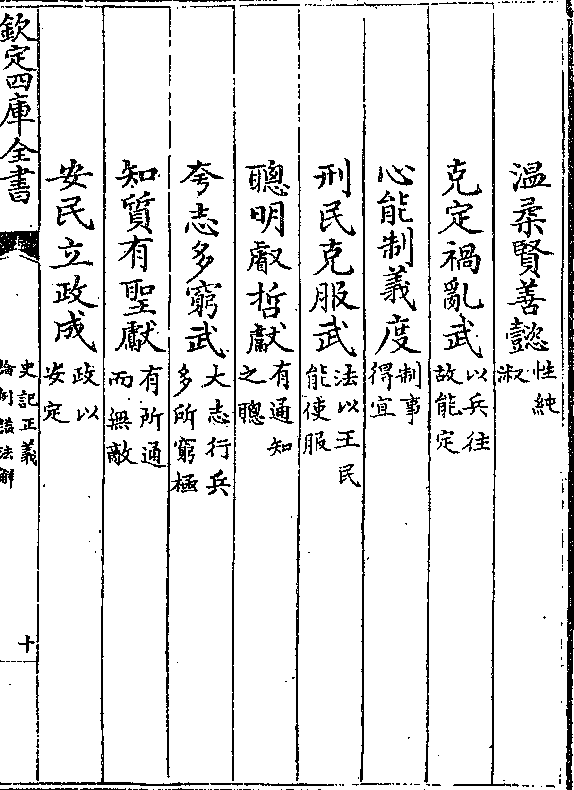 溫柔賢善懿性純淑
克定禍亂武以兵往故能定
心能制義度制事得宜
刑民克服武法以王民能使服
聰明叡哲獻有通知之聰
夸志多窮武大志行兵多所窮極
知質有聖獻有所通而無敵
安民立政成政以安定
欽定四庫全書
史記正義
論例諡法解
十